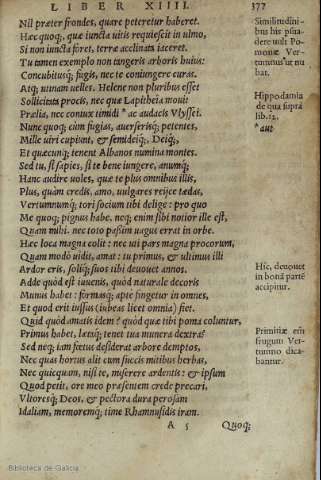 LIBER XIIII.
377
Nil præter frondes, quare peteretur haberet.
Hæc quoq;, quæ iuncta uitis requiescit in ulmo,
Si non iuncta foret, terræ acclinata iaceret.
Tu tamen exemplo non tangeris arboris huius:
Concubitusq; fugis, nec te coniungere curas.
Atq; utinam uelles. Helene non pluribus esset
Sollicitata procis, nec quæ Lapitheia mouit
Prælia, nec coniux timidi * ac audacis Vlyssei.
Nunc quoq; cum fugias, auerserisq; petentes,
Mille uiri cupiunt, & semideiq;, Deiq;,
Et quæcunq; tenent Albanos numina montes.
Sed tu, si sapies, si te bene iungere, anumq;
Hanc audire uoles, quæ te plus omnibus illis,
Plus, quàm credis, amo, uulgares reijce tædas,
Vertumnumq; tori socium tibi delige: pro quo
Me quoq; pignus habe. neq; enim sibi notior ille est,
Quàm mihi. nec toto passim uagus errat in orbe.
Hæc loca magna colit: nec uti pars magna procorum,
Quam modò uidis, amat: tu primus, & ultimus illi
Ardor eris, soliq; suos tibi deuouet annos.
Adde quòd est iuuenis, quòd naturale decoris
Munus habet: formasq; apte fingetur in omnes,
Et quod erit iussus (iubeas licet omnia) fiet.
Quid quòd amatis idem? quòd quæ tibi poma coluntur,
Primus habet, lætaq; tenet tua munera dextra?
Sed neq; iam fœtus desiderat arbore demptos,
Nec quas hortus alit cum succis mitibus herbas,
Nec quicquam, nisi te, miserere ardentis: & ipsum
Quod petit, ore meo præsentem crede precari.
Vltoresq; Deos, & pectora dura perosam
Idaliam, memoremq; time Rhamnusidis iram.
A 5 Quoq;
Similitudini-
bus his persua-
dere uolt Po-
monæ Ver-
tumnus ut nu
bat.
Hippodamia
de qua suprà
lib. 12.
* aut
Hîc, deuouet
in bonā partē
accipitur.
Primitiæ em̄
frugum Ver-
tumno dica-
bantur.
Biblioteca de Galicia